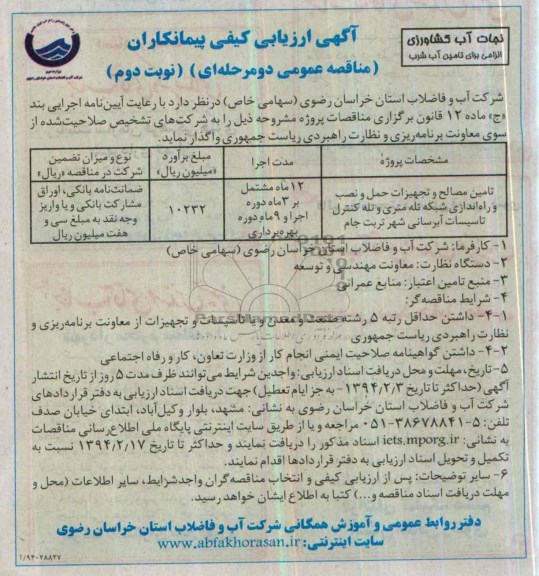 نجات آب کشاورزی
الزامی برای تامین آب شرب
آگهی ارزیابی کیفی پیمانکاران
(مناقصه عمومی دومرحله‌ای) (نوبت دوم)
شرکت آب و فاضلاب استان خراسان رضوی (سهامی خاص) درنظر دارد با رعایت آیین‌نامه اجرایی بند
«ج» ماده ۱۲ قانون برگزاری مناقصات پروژه مشروحه ذیل را به شرکت‌های تشخیص صلاحیت‌شده از
سوی معاونت برنامه‌ریزی و نظارت راهبردی ریاست جمهوری واگذار نماید.
مشخصات پروژه
مدت اجرا
مبلغ برآورد «میلیون ریال»
نوع و میزان تضمین شرکت در مناقصه «ریال»
تامین مصالح و تجهیزات حمل و نصب
و راه‌اندازی شبکه تله متری و تله کنترل
تاسیسات آبرسانی شهر تربت جام
۱۲ ماه مشتمل
بر ۳ ماه دوره
اجرا و ۹ ماه دوره
بهره‌برداری
۱۰۲۳۲
ضمانت‌نامه بانکی، اوراق
مشارکت بانکی و یا واریز
وجه نقد به مبلغ سی و
هفت میلیون ریال
۱- کارفرما: شرکت آب و فاضلاب استان خراسان رضوی (سهامی خاص)
۲- دستگاه نظارت: معاونت مهندسی و توسعه
۳- منبع تامین اعتبار: منابع عمرانی
۴- شرایط مناقصه‌گر:
۴-۱- داشتن حداقل رتبه ۵ رشته صنعت و معدن و یا تاسیسات و تجهیزات از معاونت برنامه‌ریزی و
نظارت راهبردی ریاست جمهوری
۴-۲- داشتن گواهینامه صلاحیت ایمنی انجام کار از وزارت تعاون، کار و رفاه اجتماعی
۵- تاریخ، مهلت و محل دریافت اسناد ارزیابی: واجدین شرایط می‌توانند ظرف مدت ۵ روز از تاریخ انتشار
آگهی (حداکثر تا تاریخ ۱۳۹۴/۲/۳- به جز ایام تعطیل) جهت دریافت اسناد ارزیابی به دفتر قراردادهای
شرکت آب و فاضلاب استان خراسان رضوی به نشانی: مشهد، بلوار وکیل‌آباد، ابتدای خیابان صدف
تلفن: ۵-۳۸۶۷۸۸۴۱-۰۵۱ مراجعه و یا از طریق سایت اینترنتی پایگاه ملی اطلاع‌رسانی مناقصات
به نشانی: iets.mporg.ir اسناد مذکور را دریافت نمایند و حداکثر تا تاریخ ۱۳۹۴/۲/۱۷ نسبت به
تکمیل و تحویل اسناد ارزیابی به دفتر قراردادها اقدام نمایند.
۶- سایر توضیحات: پس از ارزیابی کیفی و انتخاب مناقصه‌گران واجدشرایط، سایر اطلاعات (محل و
مهلت دریافت اسناد مناقصه و...) کتبا به اطلاع ایشان خواهد رسید.
دفتر روابط عمومی و آموزش همگانی شرکت آب و فاضلاب استان خراسان رضوی
سایت اینترنتی: www.abfakhorasan.ir